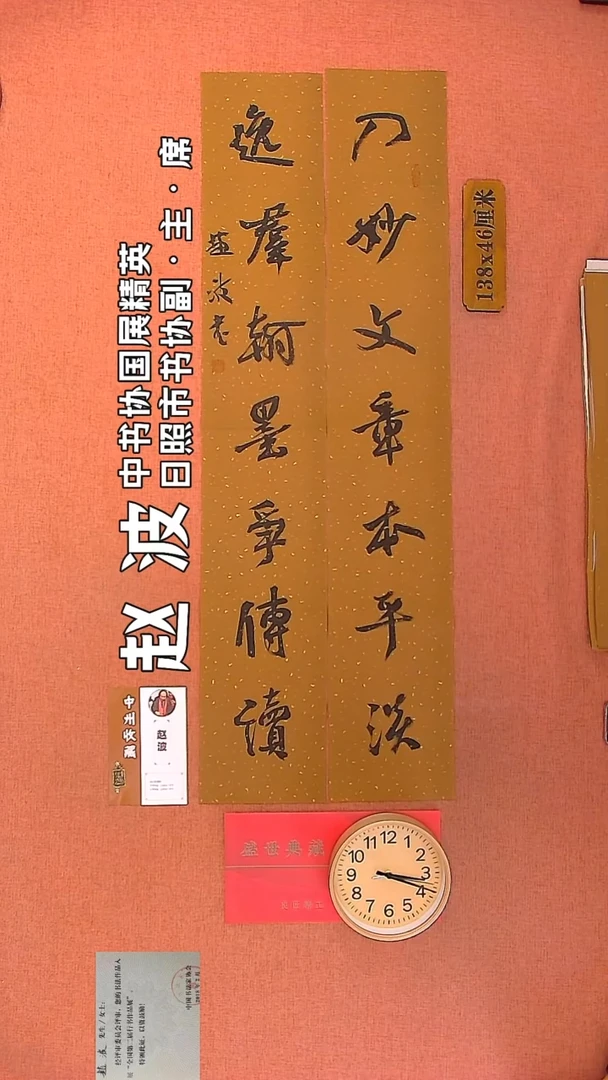 入妙文章本平淡
逸羣翰墨爭傳讀
趙波书
138x46厘米
中书协国展精英
日照市书协副·主·席
赵波
盛世典藏
12
1
2
3
4
5
6
7
8
9
10
11
趙波 先生/女士:
经评审委员会评审，您的书法作品入
展“全国第二届行书作品展”，
特颁此证，以资鼓励！
中国书法家协会